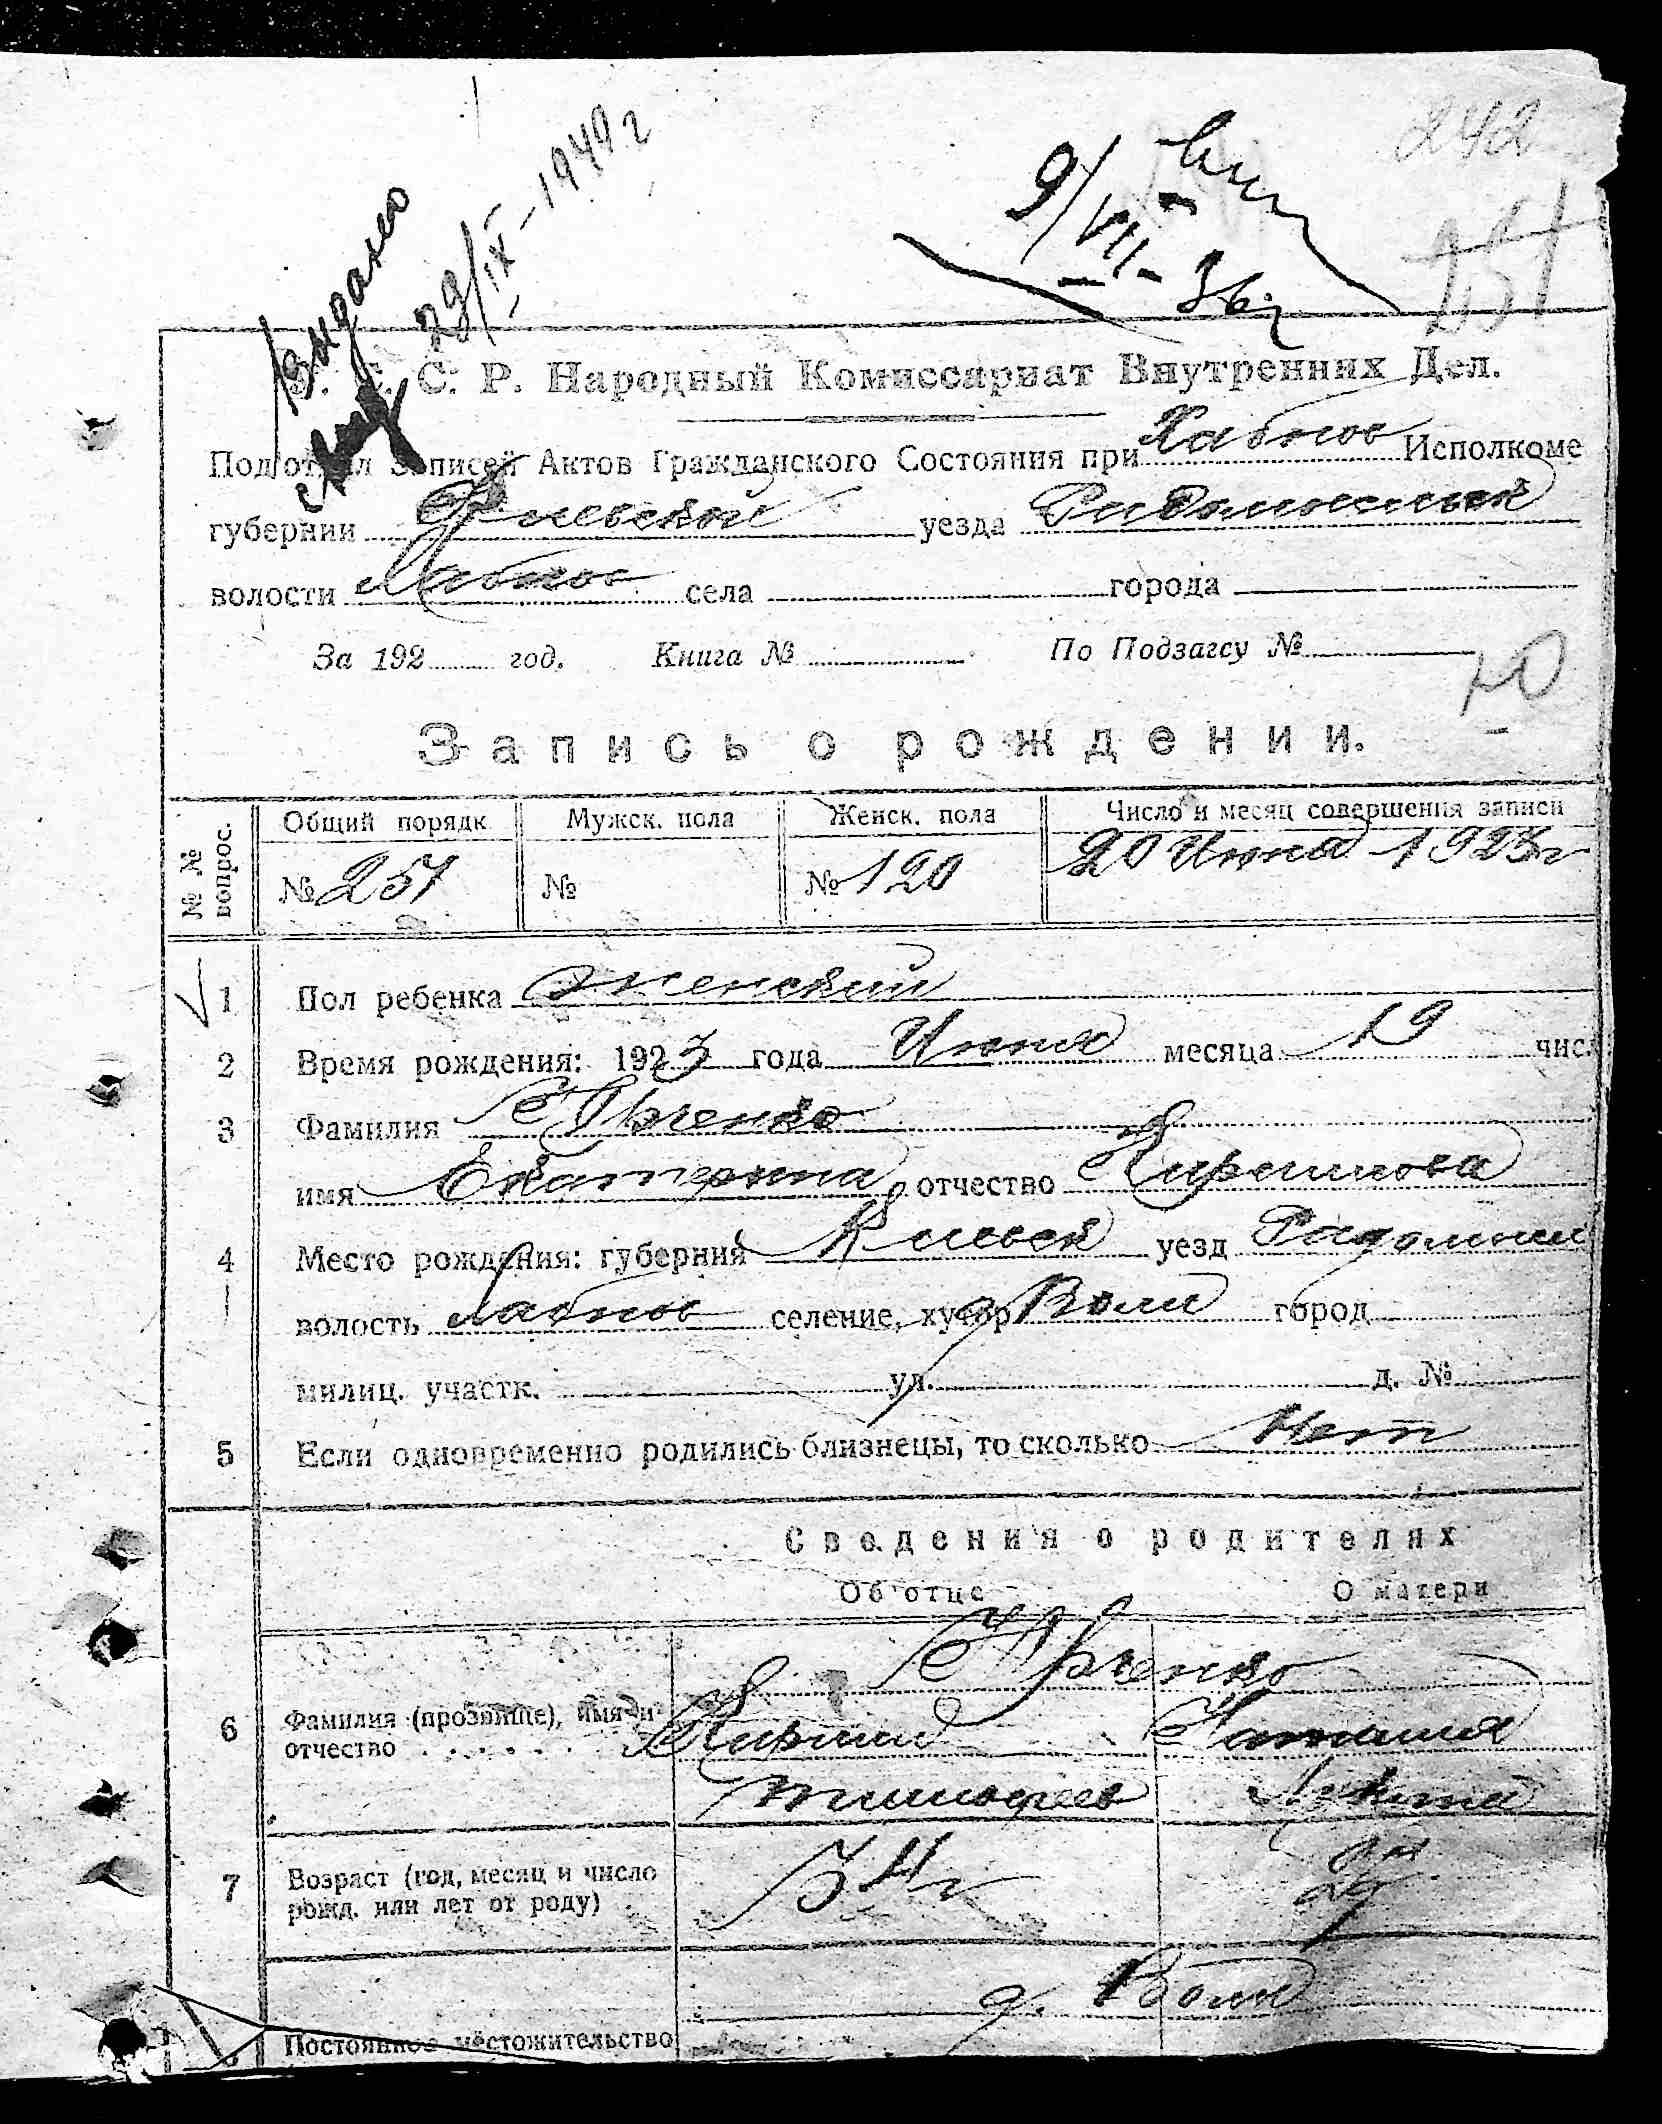 242
Выдано 29/IX-1949 г
9/VII-36 г
251
У. С. С. Р. Народный Комиссариат Внутренних Дел.
Подотдел Записей Актов Гражданского Состояния при Хабнов Исполкоме
губернии Киевской уезда Радомысльск
волости Хабнов села города
За 192 год. Книга № По Подзагсу №
Запись о рождении.
№ № вопрос. Общий порядк Мужск. пола Женск. пола Число и месяц совершения записи
№ 251 № № 120 20 Июня 1923 г
1 Пол ребенка женский
2 Время рождения: 1923 года Июня месяца 19 чис.
3 Фамилия Юрченко
имя Екатерина отчество Кириллова
4 Место рождения: губерния Киевск уезд Радомысл
волость Хабнов селение, хутор д Воли город
милиц. участк. ул. д. №
5 Если одновременно родились близнецы, то сколько Нет
Сведения о родителях
Об отце О матери
Юрченко
6 Фамилия (прозвище), имя и отчество Кирилл Наталия
Тимофеев
7 Возраст (год, месяц и число рожд. или лет от роду) 34 г
д. Воли
Постоянное местожительство